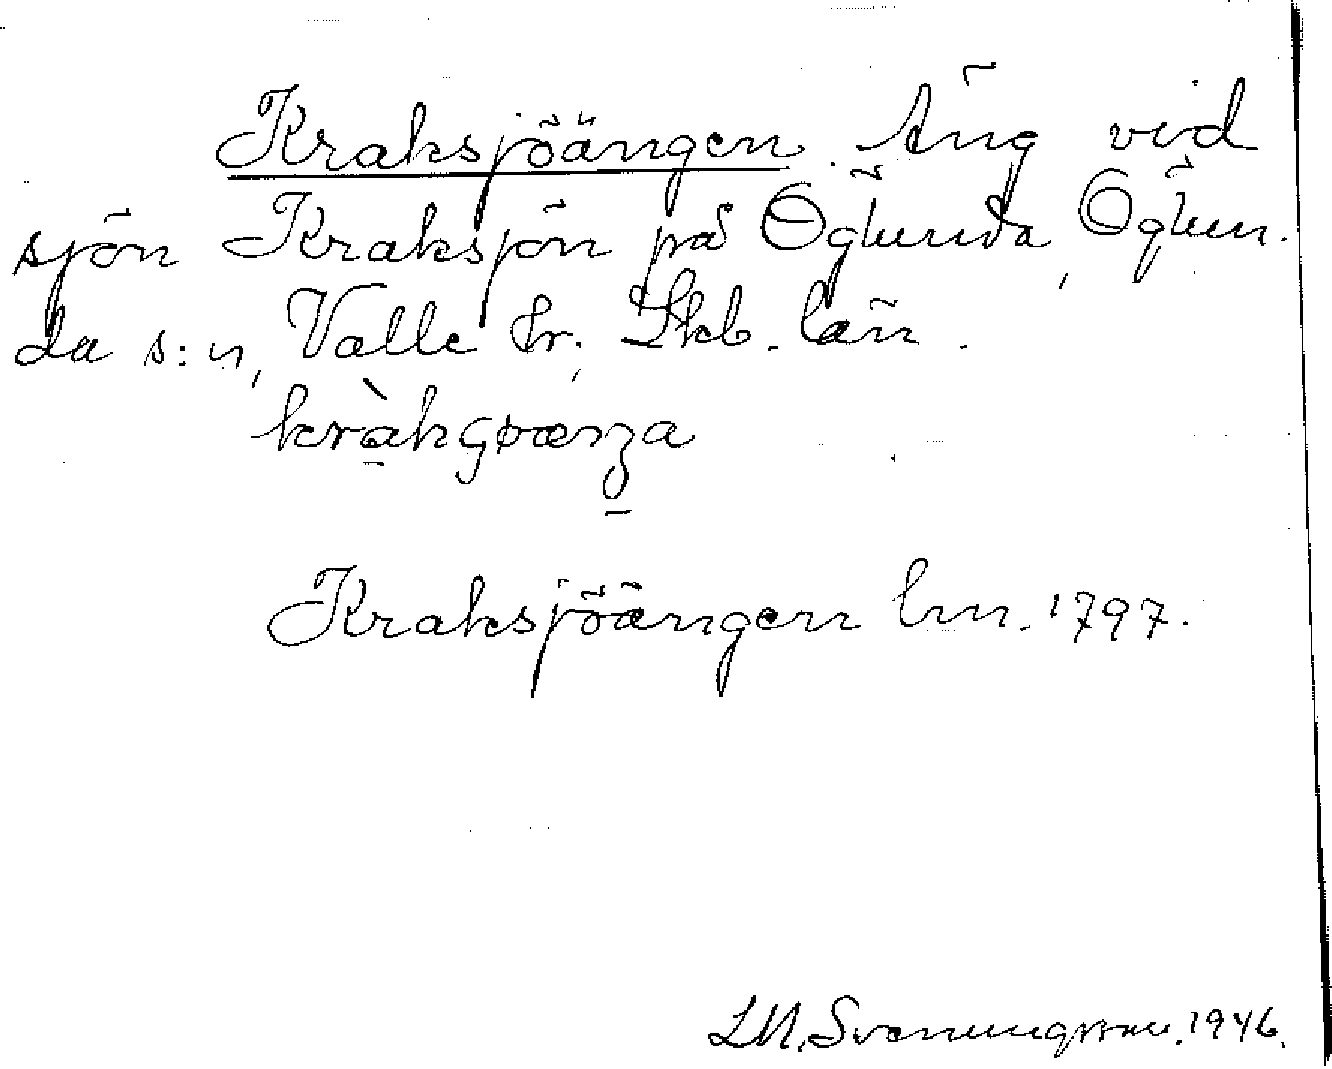 Kraksjöängen. Äng vid
sjön Kraksjön på Öglunda, Öglun-
da s:n, Valle hr, Skb. län.
kràkʂøæŋa
Kraksjöängen lm. 1797.
LM. Svenungsson. 1946.